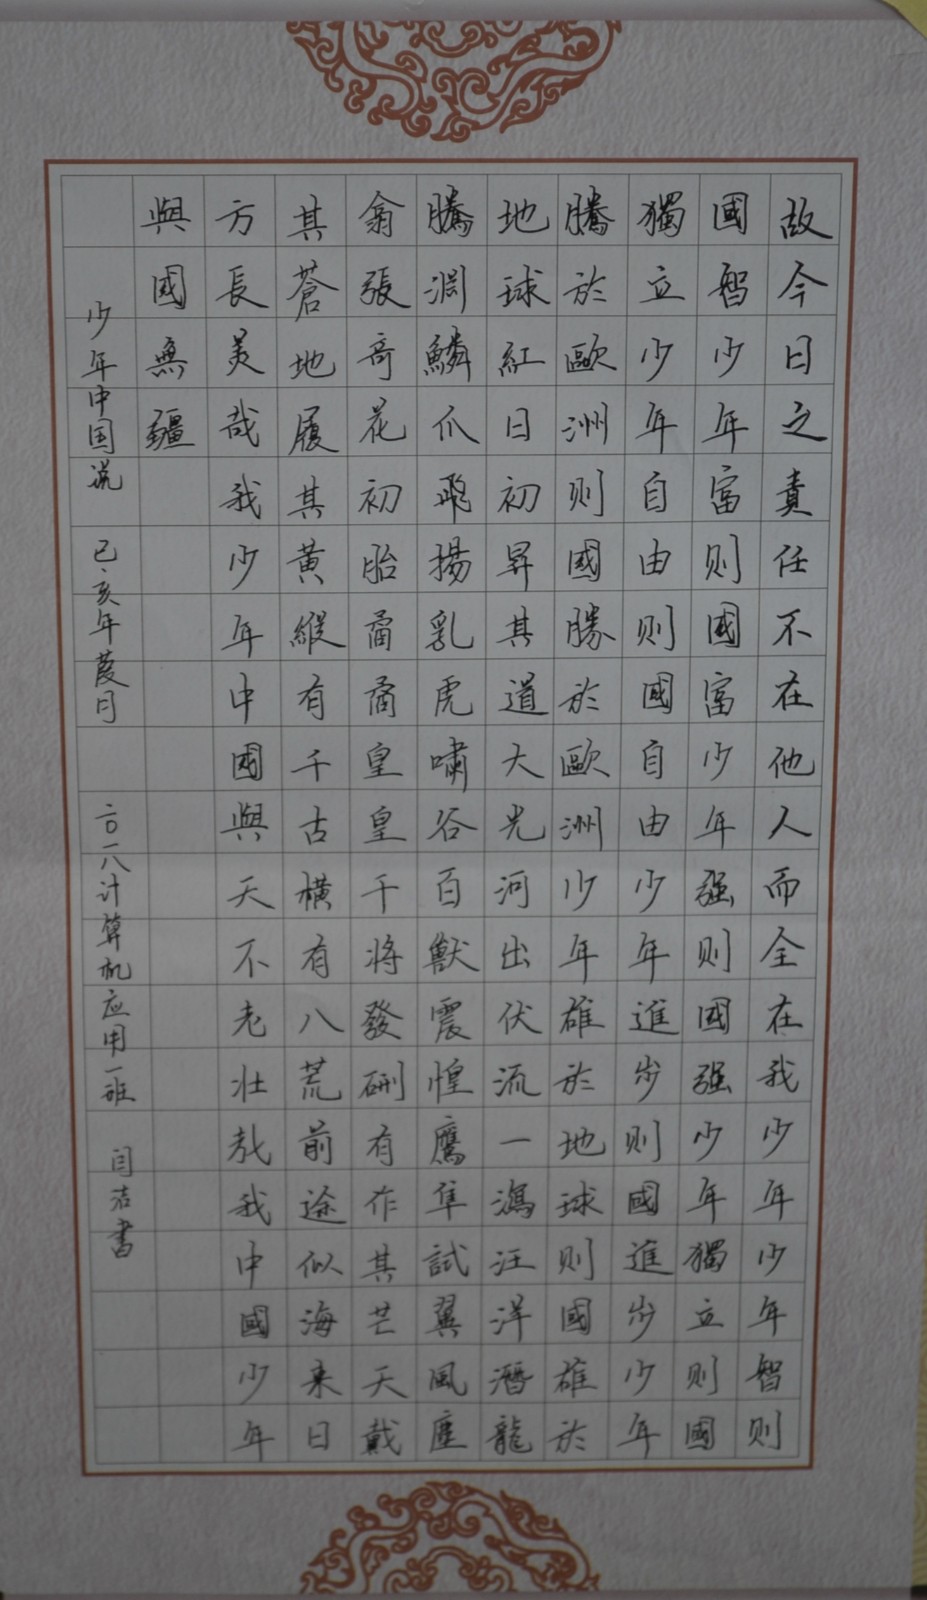 故今日之責任不在他人而全在我少年少年智則
國智少年富則國富少年强則國强少年獨立則國
獨立少年自由則國自由少年進步則國進步少年
騰於歐洲則國勝於歐洲少年雄於地球則國雄於
地球紅日初昇其道大光河出伏流一瀉汪洋潛龍
騰淵鱗爪飛揚乳虎嘯谷百獸震惶鷹隼試翼風塵
翕張奇花初胎矞矞皇皇干將發硎有作其芒天戴
其蒼地履其黃縱有千古橫有八荒前途似海來日
方長美哉我少年中國與天不老壯哉我中國少年
與國無疆
少年中国说 己亥年葭月 二〇一八计算机应用一班 闫洁書